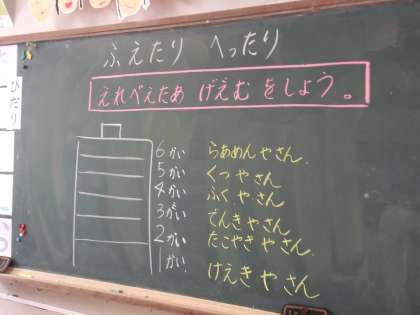 ふえたり へったり
えれべえたあ げえむ をしよう。
6かい らあめん やさん.
5かい くつ やさん
4かい ふく やさん.
3がい でんき やさん.
2かい たこやき やさん.
1かい. けえき や さん
ひだり